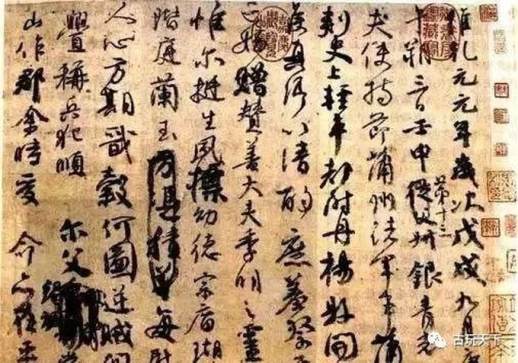 維乾元元年歲次戊戌九月
午朔三日壬申第十三從父叔銀青光
夫使持節蒲州諸軍事蒲
刺史上輕車都尉丹楊縣開國
侯真卿以清酌庶羞祭
亡姪贈贊善大夫季明之靈
惟爾挺生夙標幼德宗廟瑚
階庭蘭玉方憑積善每慰
人心方期戩穀何圖逆賊間
釁稱兵犯順爾父
山作郡余時受命亦在平
古玩天下